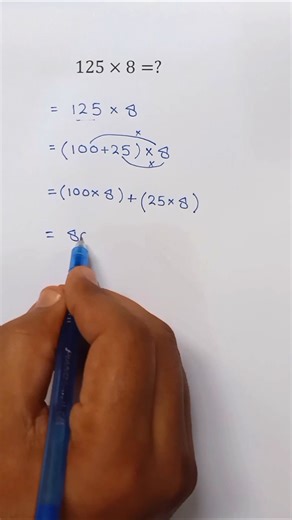 125 × 8 =?
= 125 × 8
×
= (100+25) × 8
×
= (100 × 8) + (25 × 8)
= 8